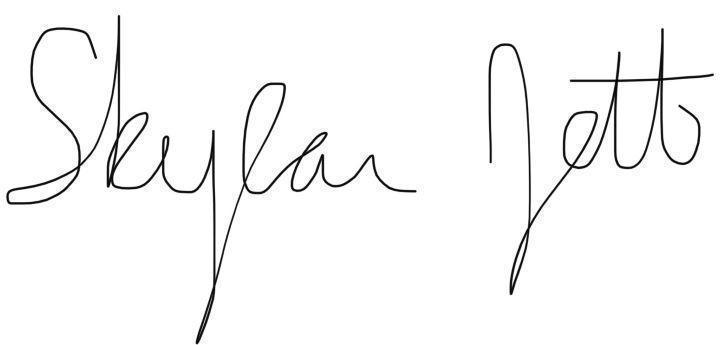 Skylar Jett